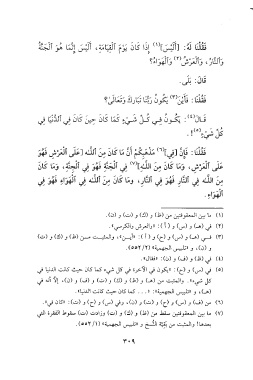 فَقُلْنَا لَهُ: [أَلَيْسَ](١) إِذَا كَانَ يَوْمَ الْقِيَامَةِ، أَلَيْسَ إِنَّمَا هُوَ الْجَنَّةُ
وَالنَّارُ، وَالْعَرْشُ(٢) وَالْهَوَاءُ؟
قَالَ: بَلَى.
فَقُلْنَا: فَأَيْنَ(٣) يَكُونُ رَبُّنَا تَبَارَكَ وَتَعَالَى؟
قَالَ(٤): يَكُونُ فِي كُلِّ شَيْءٍ كَمَا كَانَ حِينَ كَانَ فِي الدُّنْيَا فِي
كُلِّ شَيْءٍ(٥)!.
فَقُلْنَا: فَإِنَّ [فِي](٦) مَذْهَبِكُمْ أَنَّ مَا كَانَ مِنَ اللَّهِ [عَلَى الْعَرْشِ فَهُوَ
عَلَى الْعَرْشِ، وَمَا كَانَ مِنَ اللَّهِ](٧) فِي الْجَنَّةِ فَهُوَ فِي الْجَنَّةِ، وَمَا كَانَ
مِنَ اللَّهِ فِي النَّارِ فَهُوَ فِي النَّارِ، وَمَا كَانَ مِنَ اللَّهِ فِي الْهَوَاءِ فَهُوَ فِي
الْهَوَاءِ.
(١) ما بين المعقوفتين من (ظ) و(ك) و(ت) و(ن).
(٢) في (هـ) و(س) و(أ): «والعرش والكرسي».
(٣) في (هـ) و(س) و(ح) و(أ): «أين»، والمثبت من (ظ) و(ك) و(ت)
و(ن)، و«تلبيس الجهمية» (٥٥٢/٢).
(٤) في (ظ) و(ف) و(ن): «فقال».
(٥) في (س) و(ح): «يكون في الآخرة في كل شيء كما كان حيث كانت الدنيا في
كل شيء». والمثبت من (هـ) و(ظ) و(ك) و(ت) و(ف) و(ن)، إلا أنه في
(هـ)، و«تلبيس الجهمية»: «... كما كان حيث كانت الدنيا».
(٦) من (ف) و(س) و(ح) و(ت) و(ن)، وفي (س) و(ح) و(ت): «كان في».
(٧) ما بين المعقوفتين سقط من (ظ) و(ك) و(ت) وزادت (ت) سقوط الفقرة التي
بعدها! والمثبت من بقيّة النُّسخ و«تلبيس الجهمية» (٥٥٢/١).
٣٠٩